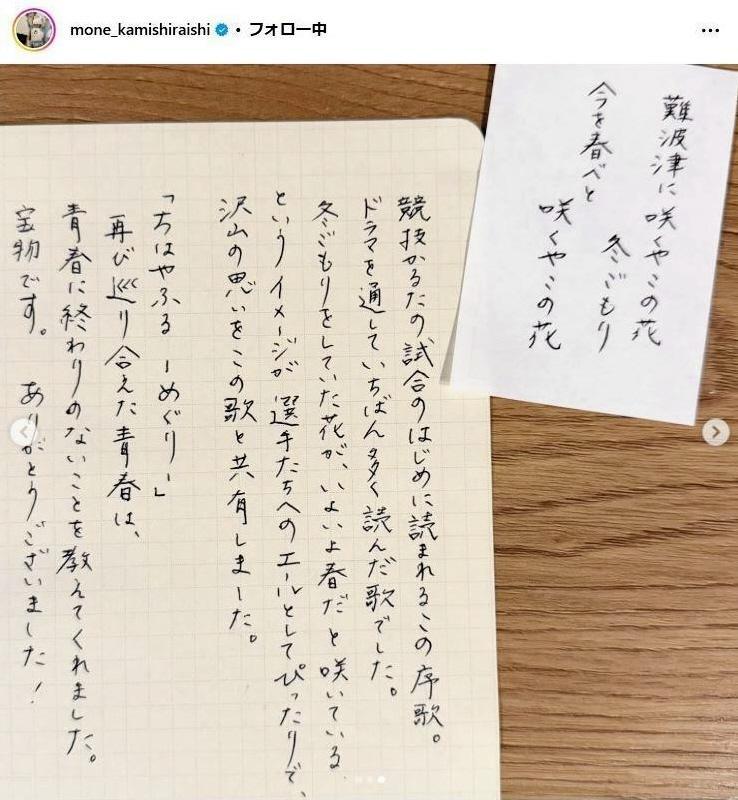 mone_kamishiraishi • フォロー中
難波津に 咲くやこの花
冬ごもり
今を春べと
咲くやこの花
競技かるたの、試合のはじめに読まれるこの序歌。
ドラマを通していちばん多く読んだ歌でした。
冬ごもりをしていた花が、いよいよ春だと咲いている
というイメージが選手たちへのエールとしてぴったりで、
沢山の思いをこの歌と共有しました。
「ちはやふる ーめぐりー」
再び巡り合えた青春は、
青春に終わりのないことを教えてくれました。
宝物です。 ありがとうございました!